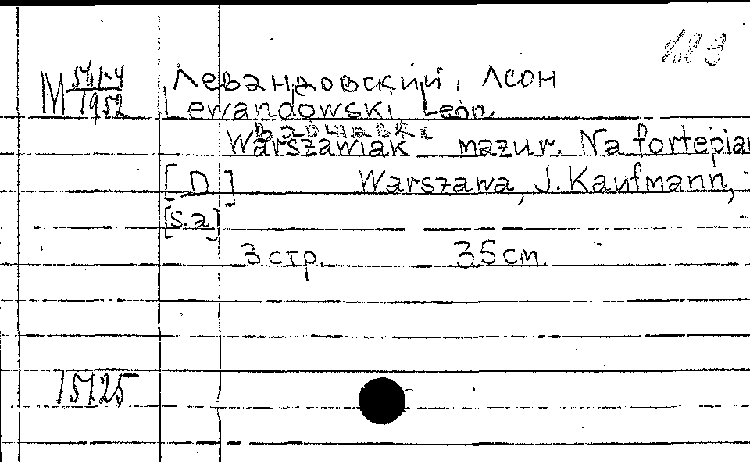 М 1952
Левандовский, Леон
Lewandowski Leon.
Warszawiak mazur. Na fortepian
[D] Warszawa, J. Kaufmann,
[s.a]
3 стр. 35 cm.
15125